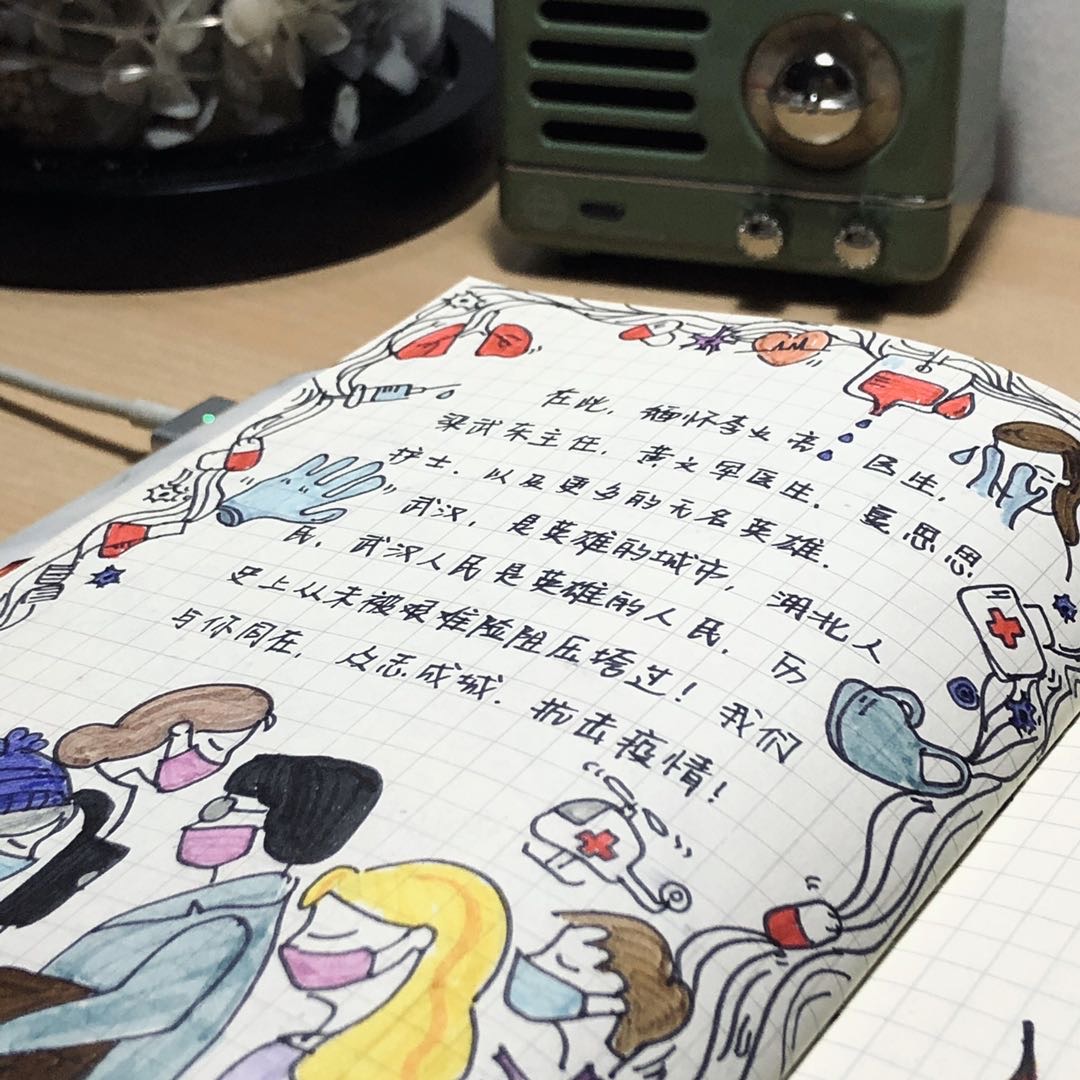 在此，缅怀李文亮医生，
梁武东主任，黄文军医生，夏思思
护士，以及更多的无名英雄．
武汉，是英雄的城市，湖北人
民、武汉人民是英雄的人民，历
史上从未被艰难险阻压垮过！我们
与你同在，众志成城，抗击疫情！